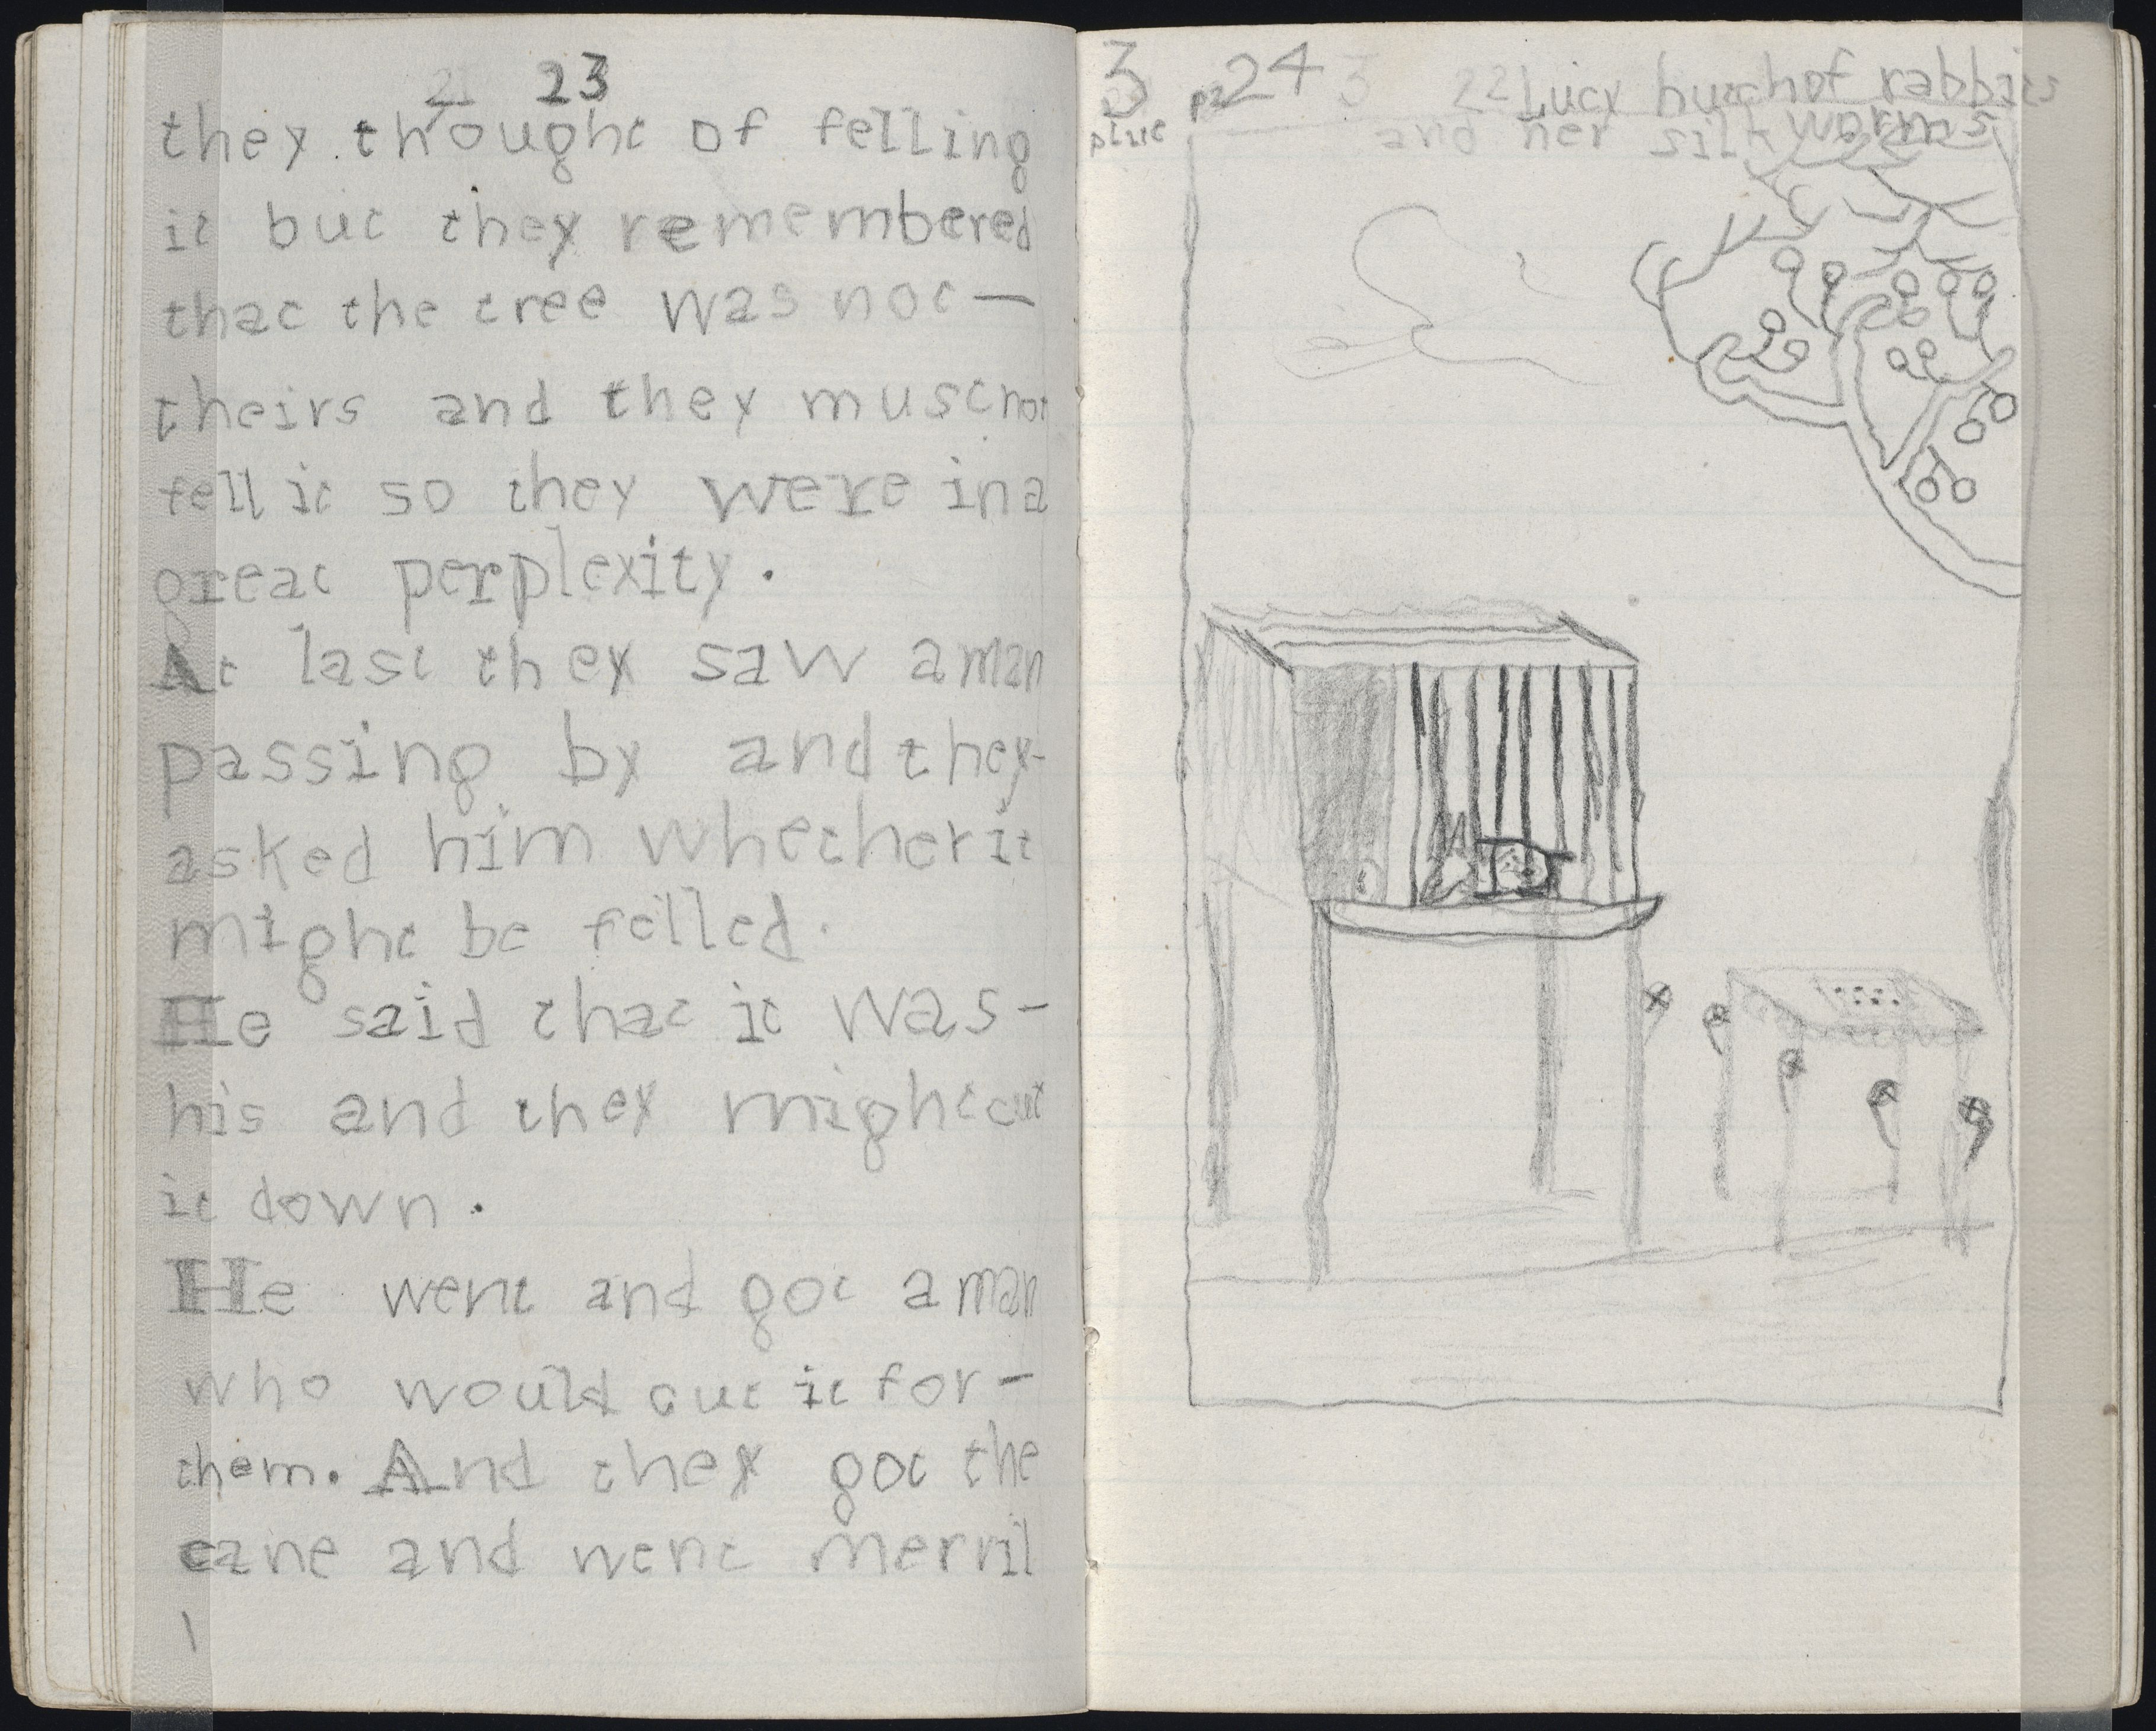 21 23
they thought of felling
it but they remembered
that the tree was not—
theirs and they must not
fell it so they were in a
great perplexity.
At last they saw a man
passing by and they-
asked him whether it
might be felled.
He said that it was-
his and they might cut
it down.
He went and got a man
who would cut it for-
them. And they got the
cane and went merril
3 24 3 22 Lucy hutch of rabbits
and her silk worms